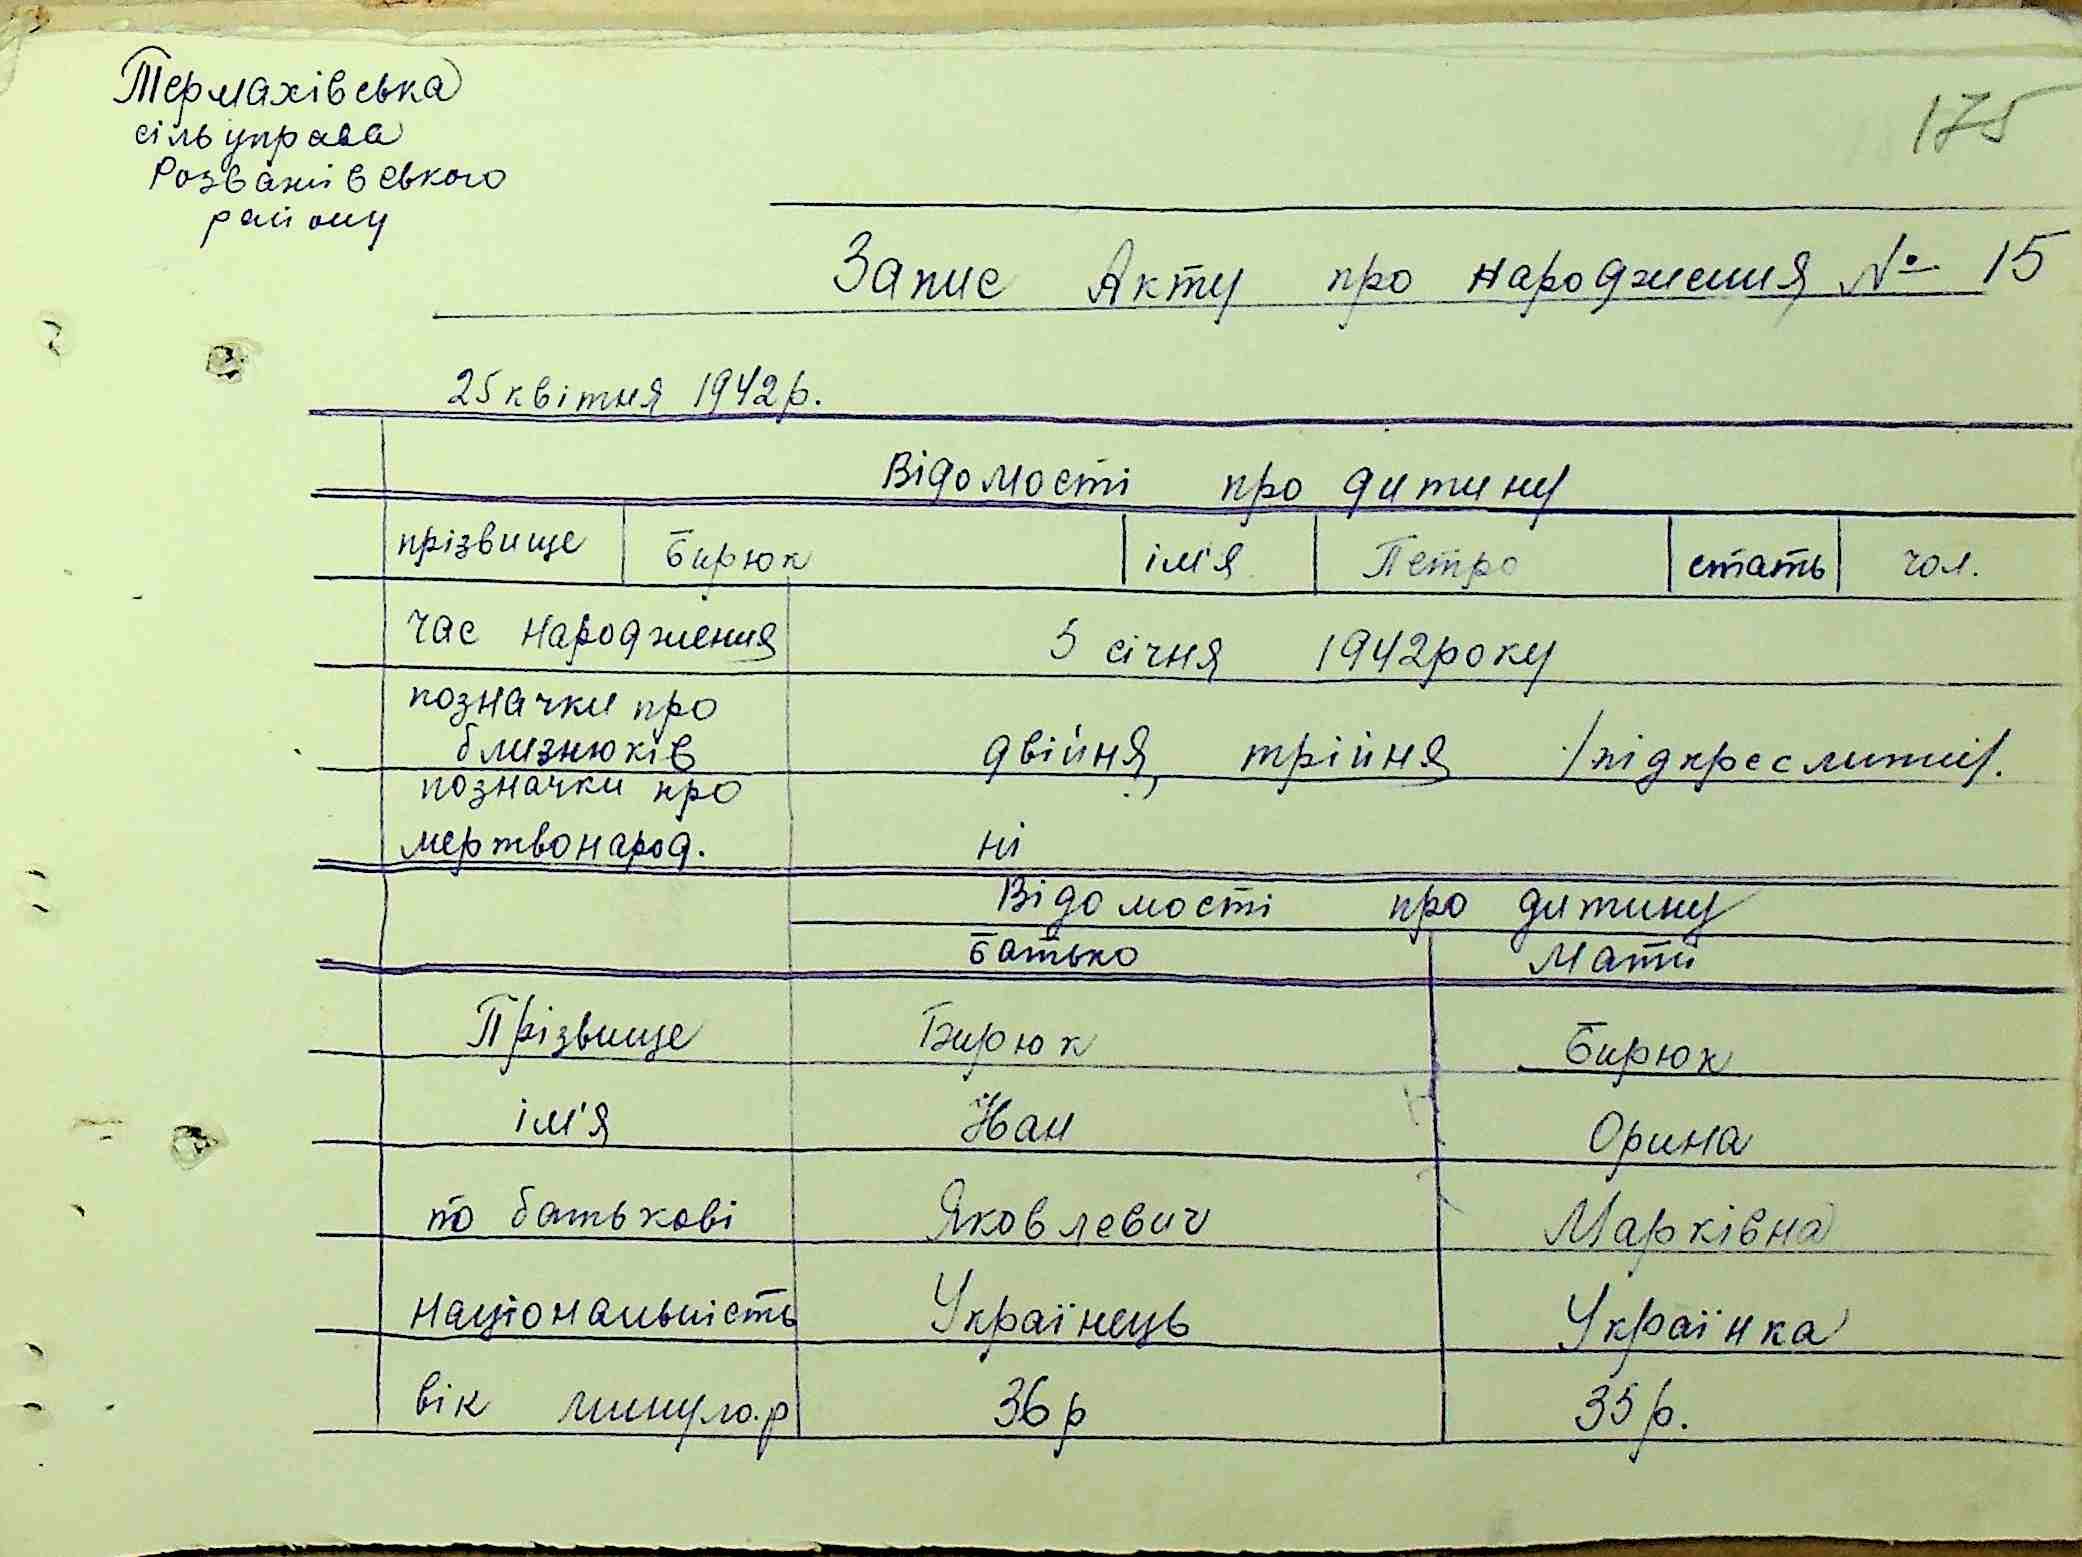 Термахівська
сільуправа
Розважівського
району
175
Запис Акту про народження № 15
25 квітня 1942р.
Відомості про дитину
прізвище Бирюк ім'я Петро стать чол.
час народження 5 січня 1942року
позначки про
близнюків двійня, трійня /підкреслити/.
позначки про
мертвонарод. ні
Відомості про дитину
батько мати
Прізвище Бирюк Бирюк
ім'я Іван Орина
по батькові Яковлевич Марківна
національність Українець Українка
вік минуло.р 36р 35р.